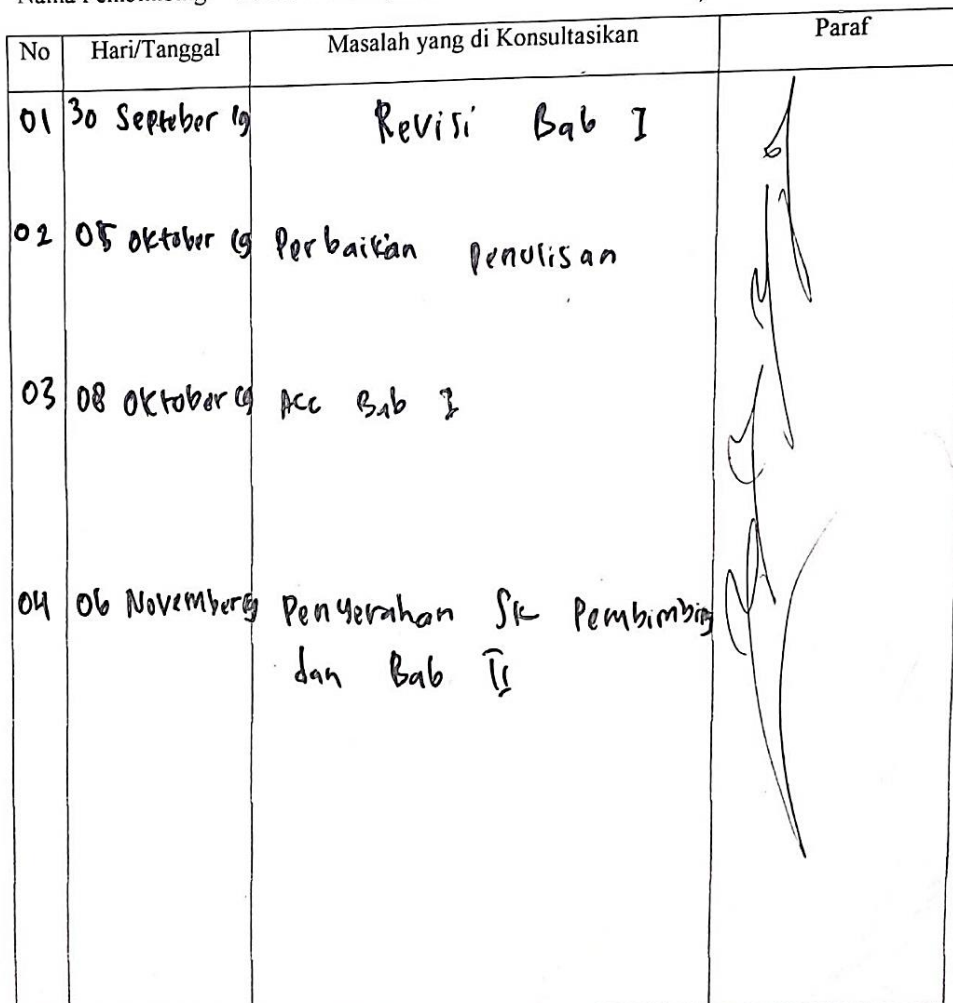 No Hari/Tanggal Masalah yang di Konsultasikan Paraf
01 30 Septeber 19 Revisi Bab I
02 05 oktober 19 Perbaikan penulisan
03 08 oktober 19 Acc Bab I
04 06 November 19 Penyerahan SK Pembimbing
dan Bab II